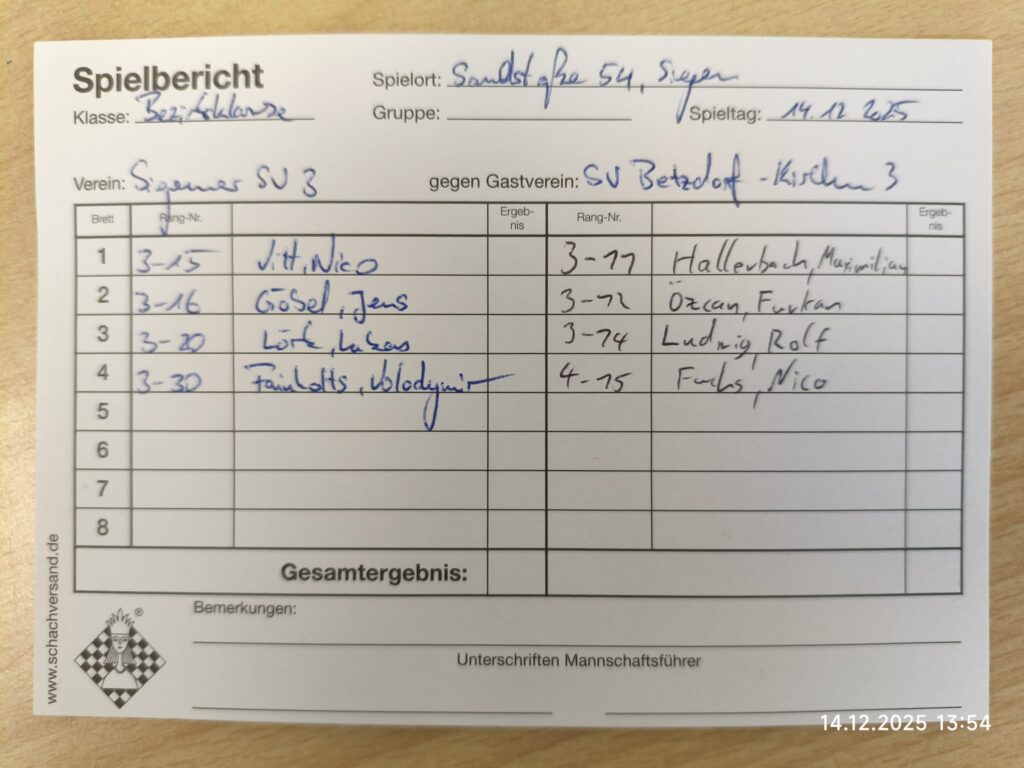 Spielbericht
Spielort: Sandstraße 54, Siegen
Klasse: Bezirksklasse Gruppe: Spieltag: 14.12 2025
Verein: Sigener SV 3 gegen Gastverein: SV Betzdorf-Kirchen 3
Brett Rang-Nr. Ergeb-nis Rang-Nr. Ergeb-nis
1 3-15 Vitt, Nico 3-11 Hallerbach, Maximilian
2 3-16 Göbel, Jens 3-12 Özcan, Furkan
3 3-20 Lukas 3-14 Ludwig, Rolf
4 3-30 Volodymir 4-15 Fuchs, Nico
5
6
7
8
Gesamtergebnis:
Bemerkungen:
Unterschriften Mannschaftsführer
www.schachversand.de
®
14.12.2025 13:54